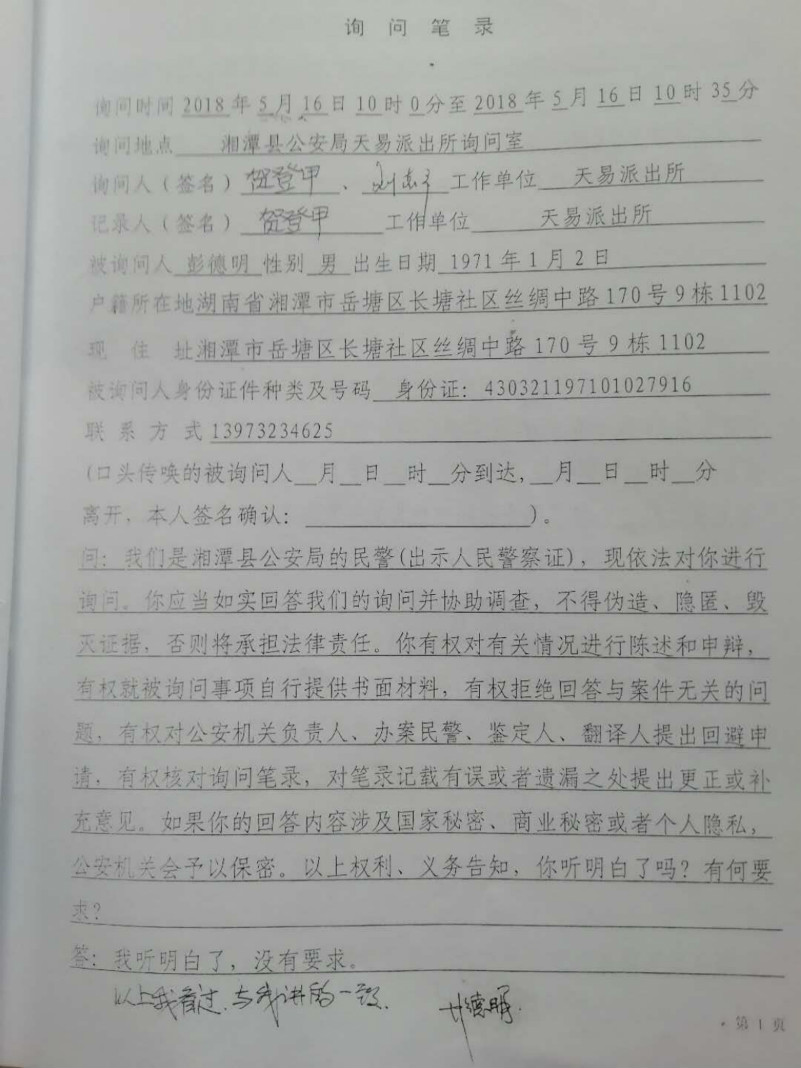 询问笔录
询问时间 2018 年 5 月 16 日 10 时 0 分至 2018 年 5 月 16 日 10 时 35 分
询问地点 湘潭县公安局天易派出所询问室
询问人（签名）贺登甲、刘 工作单位 天易派出所
记录人（签名）贺登甲 工作单位 天易派出所
被询问人 彭德明 性别 男 出生日期 1971 年 1 月 2 日
户籍所在地湖南省湘潭市岳塘区长塘社区丝绸中路 170 号 9 栋 1102
现住址湘潭市岳塘区长塘社区丝绸中路 170 号 9 栋 1102
被询问人身份证件种类及号码 身份证：430321197101027916
联系方式 13973234625
（口头传唤的被询问人__月__日__时__分到达，__月__日__时__分
离开，本人签名确认：____________）。
问：我们是湘潭县公安局的民警(出示人民警察证)，现依法对你进行
询问。你应当如实回答我们的询问并协助调查，不得伪造、隐匿、毁
灭证据，否则将承担法律责任。你有权对有关情况进行陈述和申辩，
有权就被询问事项自行提供书面材料，有权拒绝回答与案件无关的问
题，有权对公安机关负责人、办案民警、鉴定人、翻译人提出回避申
请，有权核对询问笔录，对笔录记载有误或者遗漏之处提出更正或补
充意见。如果你的回答内容涉及国家秘密、商业秘密或者个人隐私，
公安机关会予以保密。以上权利、义务告知，你听明白了吗？有何要
求？
答：我听明白了，没有要求。
以上我看过，与我讲的一致. 德明.
第 1 页